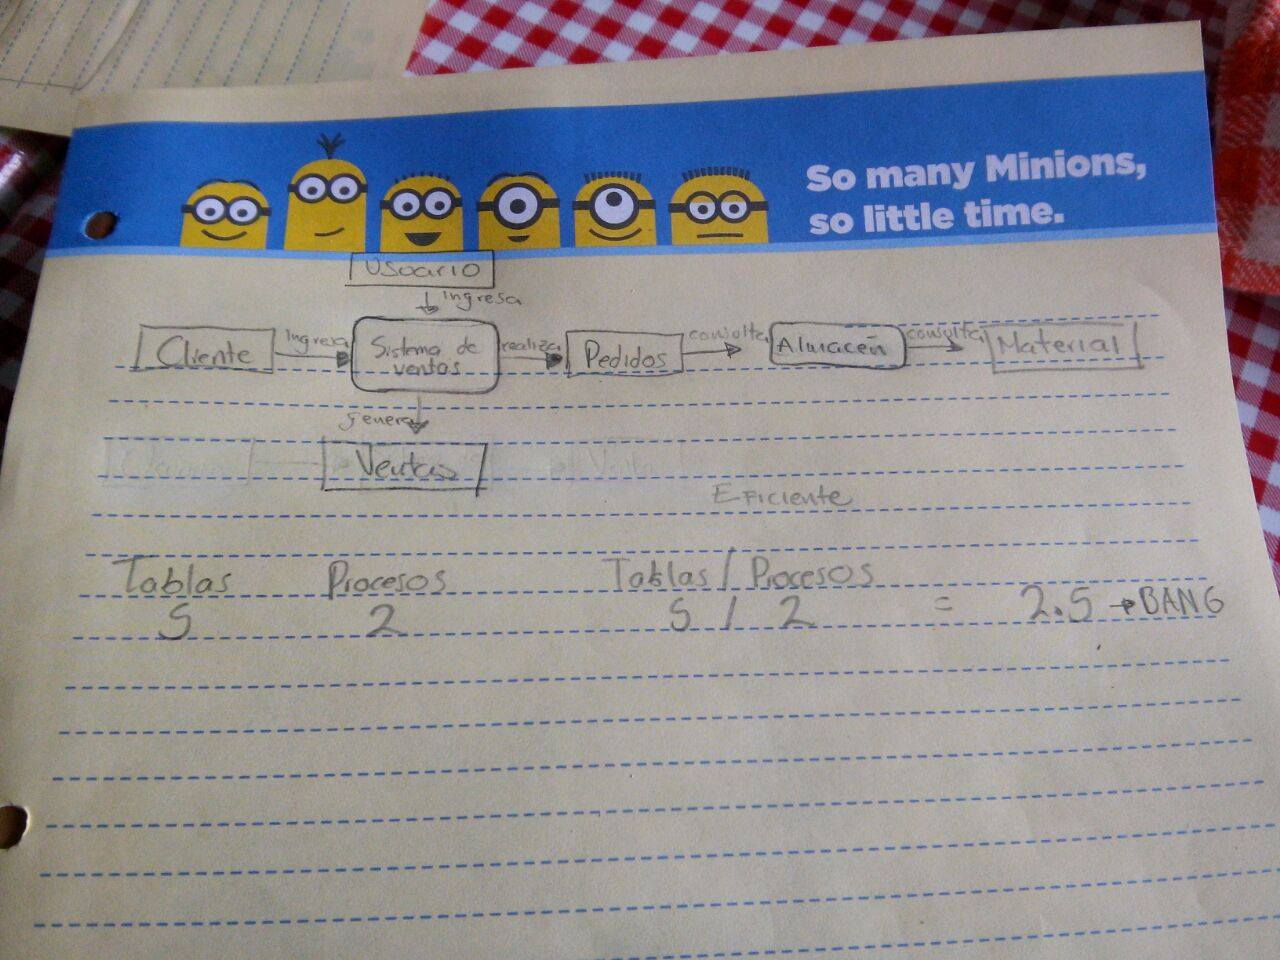 So many Minions,
so little time.
Usuario
Ingresa
Cliente
Ingresa
Sistema de
ventas
realiza
Pedidos
consulta
Almacén
consulta
Material
genera
Ventas
Eficiente
Tablas Procesos Tablas / Procesos
5 2 5 / 2 = 2.5 → BANG